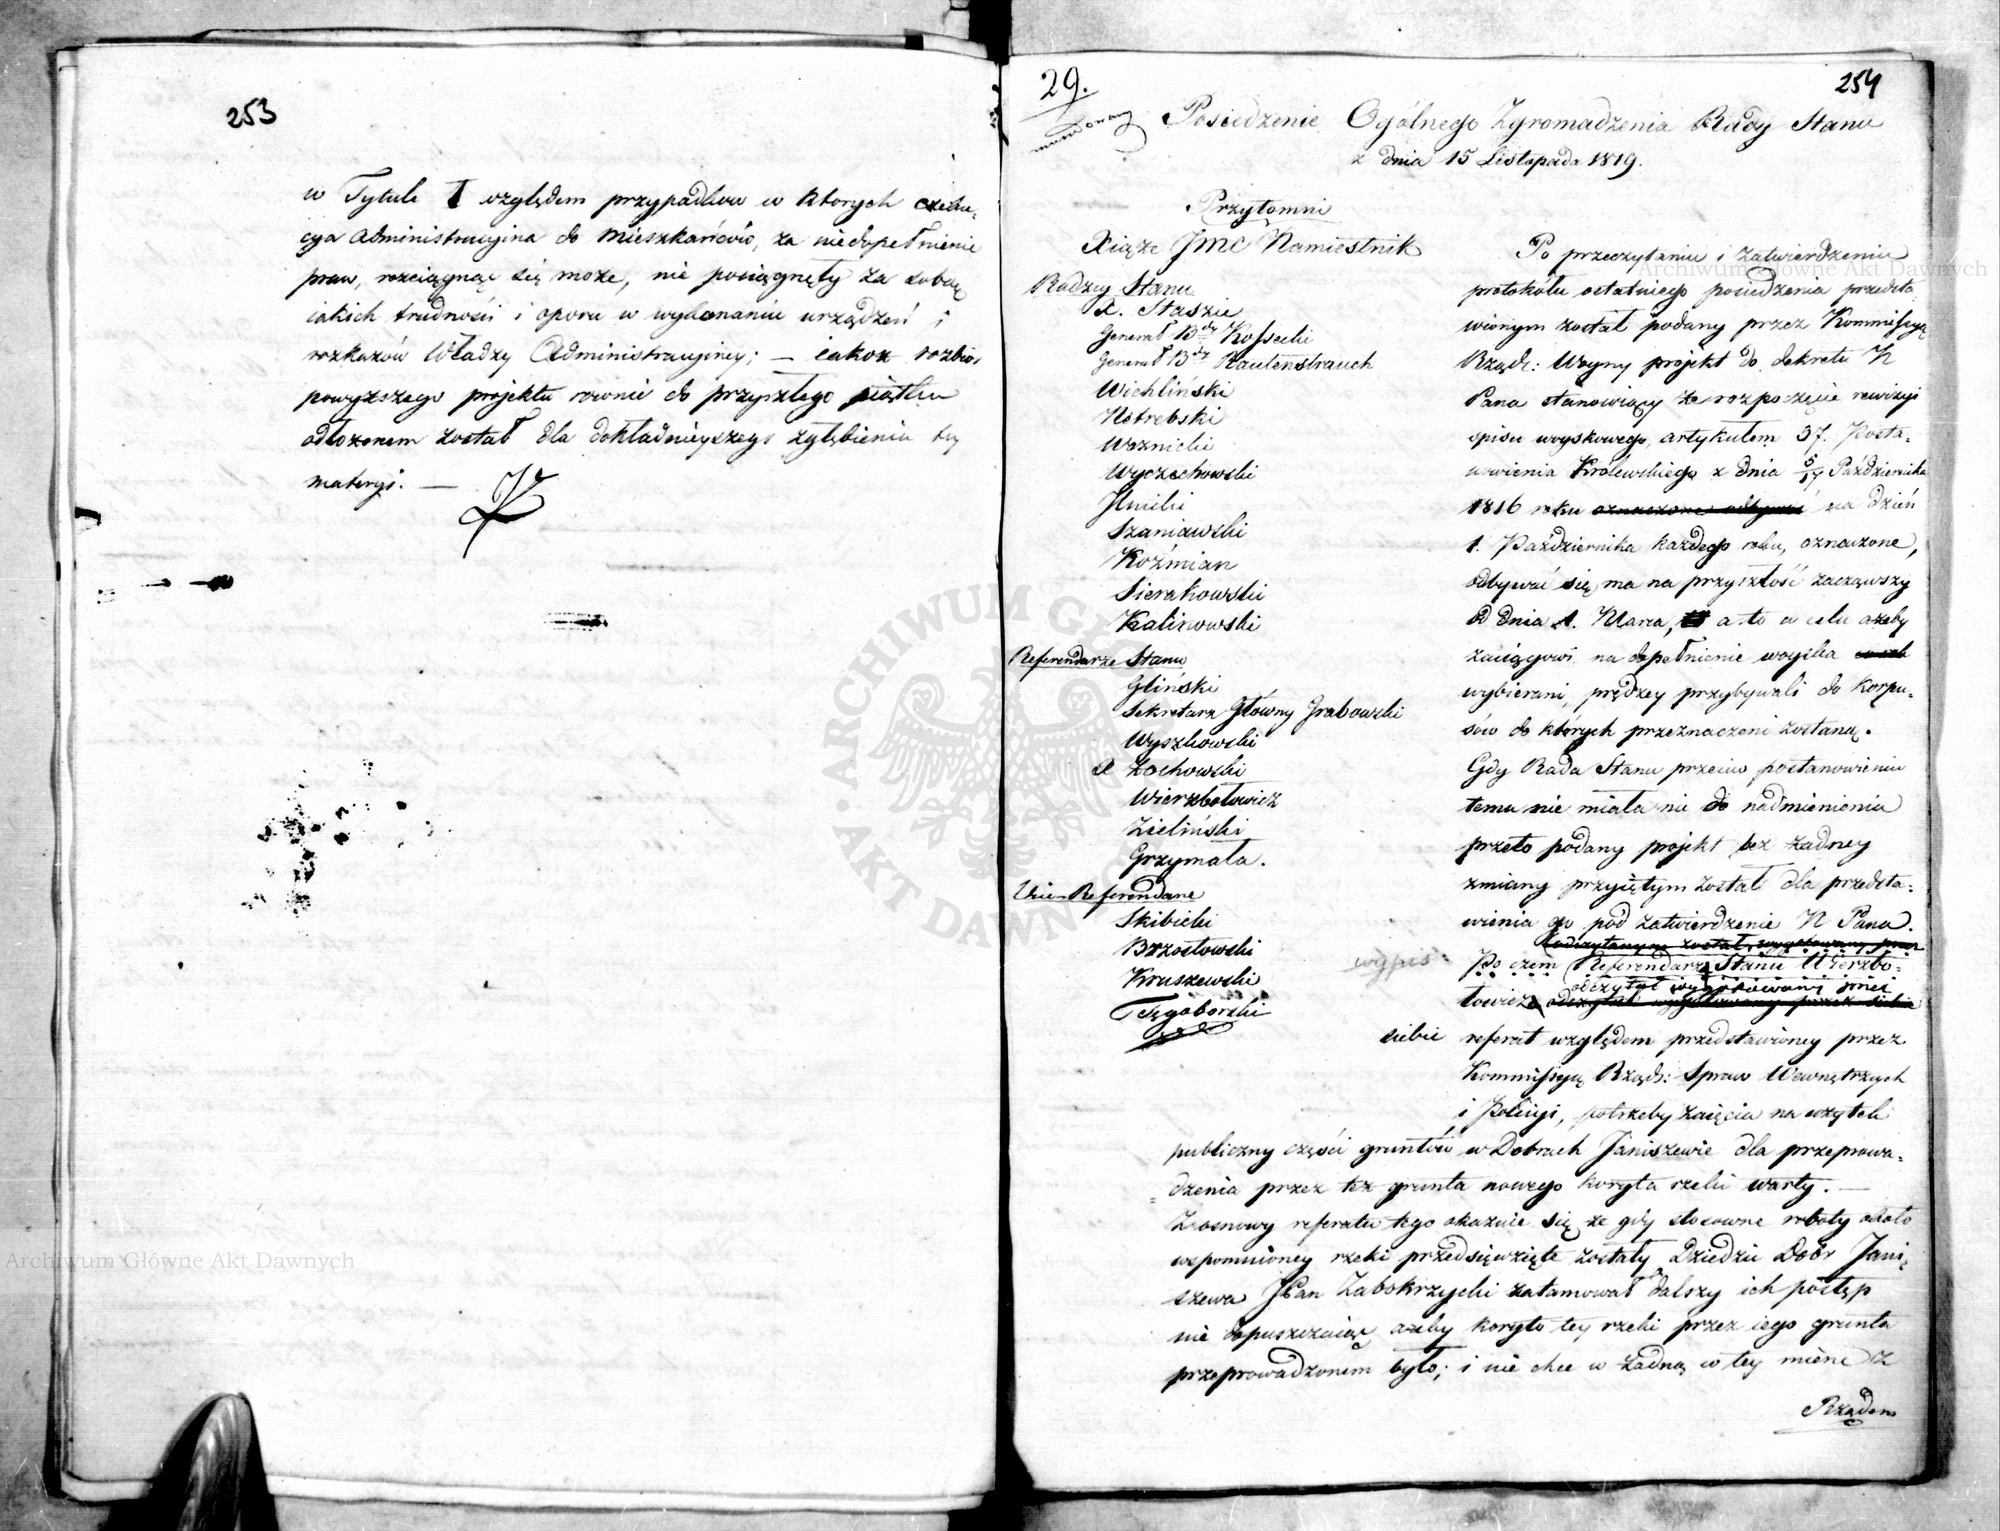 253
w Tytule I względem przypadków w ktorych exeku-
cya Administracyina do Mieszkańców, za niedopełnienie
praw, rozciągnąć się może, nie pociągnęły za sobą
iakich trudności i oporu w wykonaniu urządzeń i
rozkazów Władzy Administracyiney; — iakoż rozbior
powyższego projektu rownie do przyszłego piątku
odłożonem został dla dokładnieyszego zgłębienia tey
materyi. —
29.
254
mundowany
Posiedzenie Ogólnego Zgromadzenia Rady Stanu
z dnia 15 Listopada 1819.
Przytomni
Xiąże JMC Namiestnik
Radzcy Stanu
X. Staszic
Generał Bdy Kossecki
Generał Bdy Rautenstrauch
Wichliński
Nakwaski
Woznicki
Wyczechowski
Hmicki
Szaniawski
Koźmian
Sierakowski
Kalinowski
Referendarze Stanu
Gliński
Sekretarz Głowny Grabowski
Wyszkowski
X Łochowski
Wierzbołowicz
Zieliński
Grzymała.
Vice-Referendarze
Skibicki
Brzostowski
Kruszewski
Tęgoborski
Po przeczytaniu i zatwierdzeniu
protokółu ostatniego posiedzenia przedsta
wionym został podany przez Kommissyą
Rządz: Woyny projekt do dekretu N
Pana stanowiący że rozpoczęcie rewizyi
spisu woyskowego, artykułem 37. Posta-
nowienia Królewskiego z dnia 5/17 Października
1816 roku oznaczone odbywać na dzień
1. Października każdego roku, oznaczone,
odbywać się ma na przyszłość zacząwszy
od dnia 1. Marca, a to w celu ażeby
zaciągowi na dopełnienie woyska
wybierani, prędzey przybywali do korpu-
sów do których przeznaczeni zostaną.
Gdy Rada Stanu przeciw postanowieniu
temu nie miała nic do nadmienienia
przeto podany projekt bez żadney
zmiany przyiętym został dla przedsta-
wienia go pod zatwierdzenie N Pana.
odczytanym został wygotowany przez
wypis: Po czem Referendarz Stanu Wierzbo-
odczytał wygotowany przez
łowicz odczytał wygotowany przez siebie
siebie referat względem przedstawioney przez
Kommissyą Rządz: Spraw Wewnętrznych
i Policyi, potrzeby zaięcia na użytek
publiczny części gruntów w Dobrach Janiszewie dla przeprowa-
dzenia przez też grunta nowego koryta rzeki Warty. —
Z osnowy referatu tego okazuie się że gdy stosowne roboty około
wspomnioney rzeki przedsięwzięte zostały Dziedzic Dobr Jani-
szewa JPan Zabokrzycki zatamował dalszy ich postęp
nie dopuszczaiąc ażeby koryto tey rzeki przez iego grunta
przeprowadzonem było; i nie chce w żadną w tey mierze z
Rządem